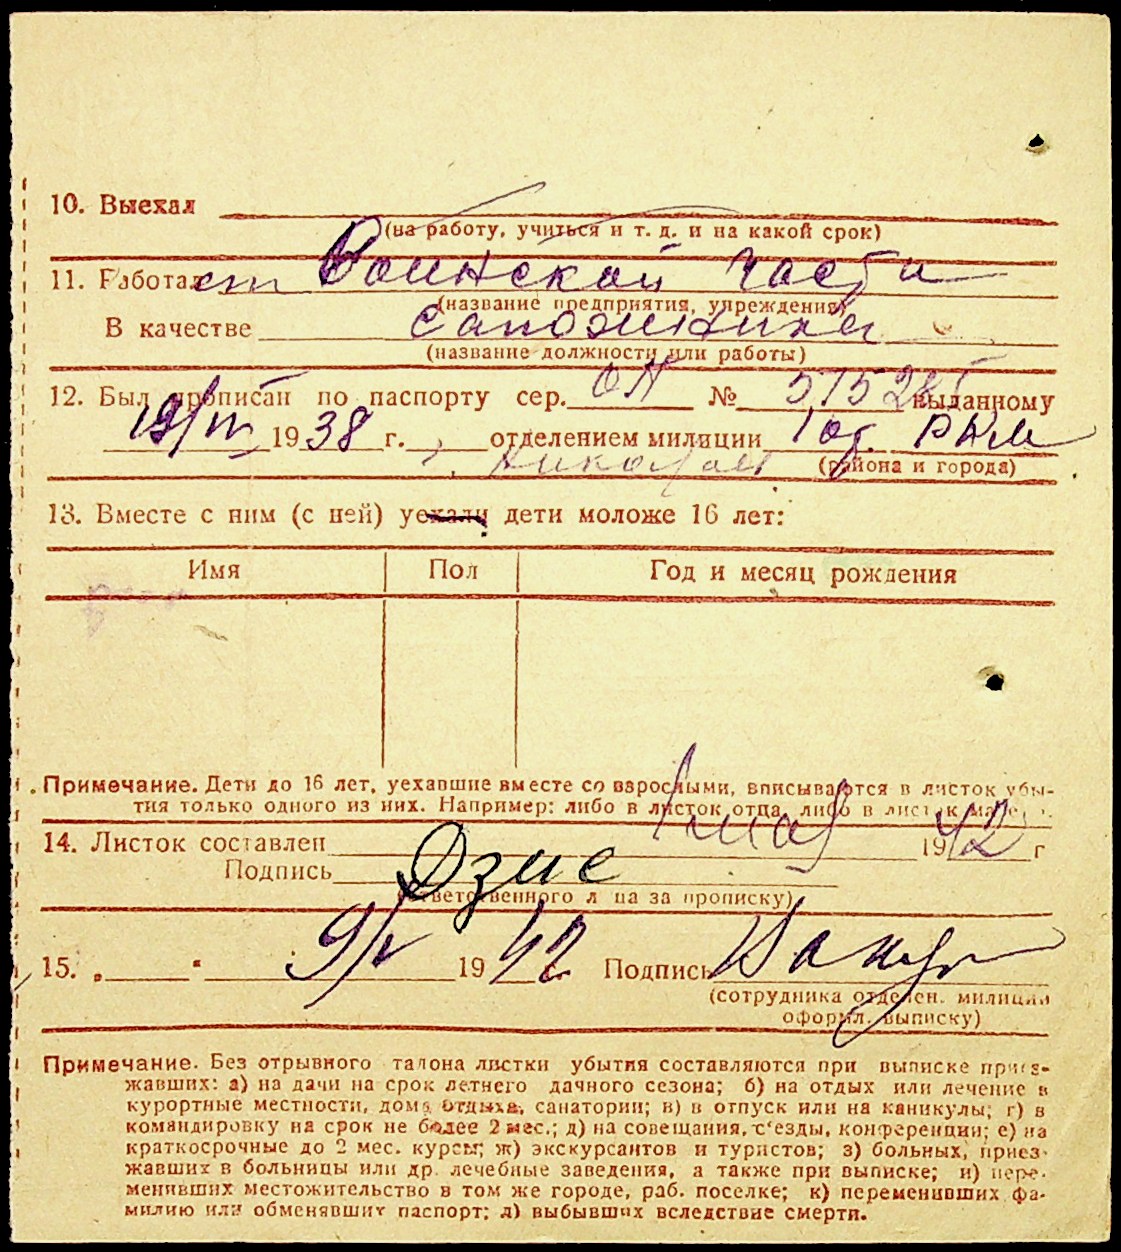 10. Выехал
(на работу, учиться и т. д. и на какой срок)
11. Работает Воинской части
(название предприятия, учреждения)
В качестве сапожника
(название должности или работы)
12. Был прописан по паспорту сер. ОЛ № 575285 выданному
19/VII 1938 г. отделением милиции 1 од. РКМ
(района и города)
13. Вместе с ним (с ней) уехали дети моложе 16 лет:
Имя Пол Год и месяц рождения
Примечание. Дети до 16 лет, уехавшие вместе со взрослыми, вписываются в листок убы-
тия только одного из них. Например: либо в листок отца, либо в листок мате
14. Листок составлен мая 1942 г
Подпись
(ответственного лица за прописку)
15. „ “ 9/V 1942 Подпись
(сотрудника отделен. милиции
оформл. выписку)
Примечание. Без отрывного талона листки убытия составляются при выписке приез-
жавших: а) на дачи на срок летнего дачного сезона; б) на отдых или лечение в
курортные местности, дома отдыха, санатории; в) в отпуск или на каникулы; г) в
командировку на срок не более 2 мес.; д) на совещания, с'езды, конференции; е) на
краткосрочные до 2 мес. курсы; ж) экскурсантов и туристов; з) больных, приез-
жавших в больницы или др. лечебные заведения, а также при выписке; и) пере-
менивших местожительство в том же городе, раб. поселке; к) переменивших фа-
милию или обменявших паспорт; л) выбывших вследствие смерти.